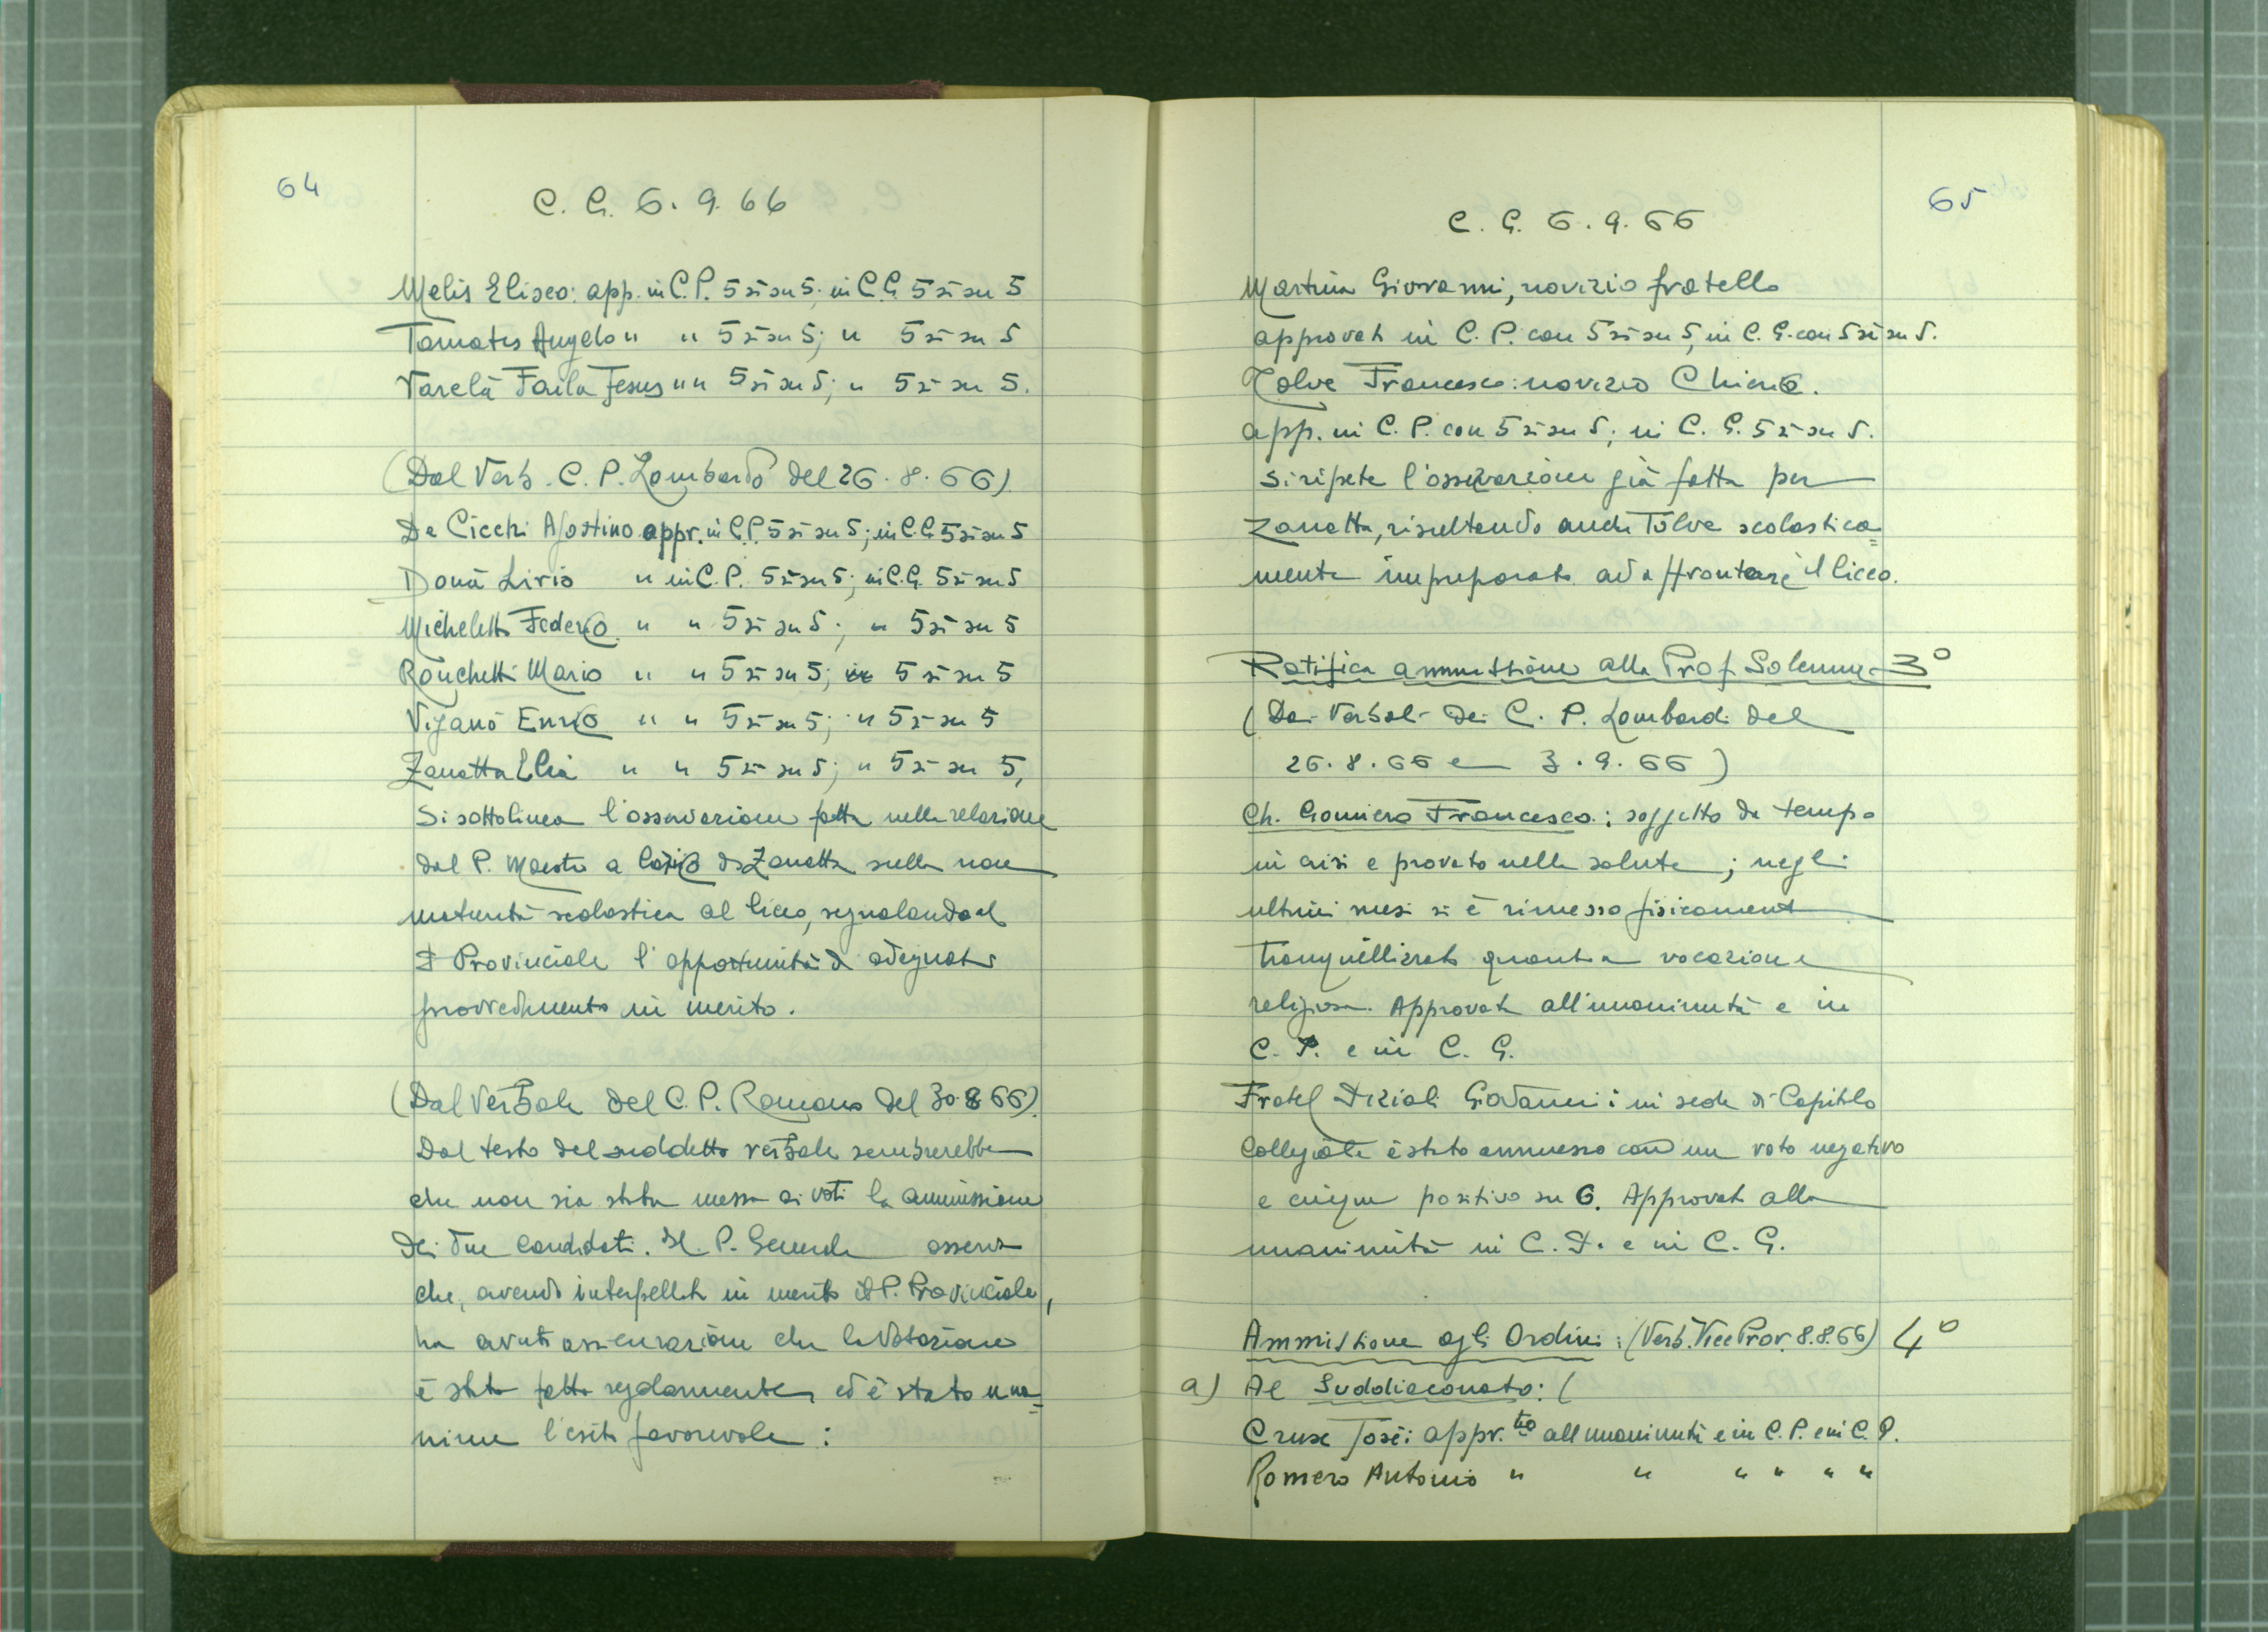 64
C. G. 6. 9. 66
Melis Eliseo: app. in C.P. 5 sì su 5; in C.G. 5 sì su 5
Tomatis Angelo " " 5 sì su 5; " 5 sì su 5
Varela Faila Jesus " " 5 sì su 5; " 5 sì su 5.
(Dal Verb. C. P. Lombardo del 26. 8. 66)
De Cicchi Agostino appr. in C.P. 5 sì su 5; in C.G. 5 sì su 5
Donà Livio " in C.P. 5 sì su 5; in C.G. 5 sì su 5
Micheletto Federico " " 5 sì su 5; " 5 sì su 5
Ronchetti Mario " " 5 sì su 5; " 5 sì su 5
Viganò Enrico " " 5 sì su 5; " 5 sì su 5
Zanatta Elia " " 5 sì su 5; " 5 sì su 5,
Si sottolinea l'osservazione fatta nella relazione
dal P. Maestro a carico di Zanatta sulla non
maturità scolastica al liceo, segnalando al
P. Provinciale l'opportunità di adeguato
provvedimento in merito.
(Dal Verbale del C. P. Romano del 30.8.66).
Dal testo del suddetto verbale sembrerebbe
che non sia stata messa ai voti la ammissione
dei due candidati. Il P. Generale asserisce
che, avendo interpellato in merito il P. Provinciale,
ha avuto assicurazione che la votazione
è stata fatta regolarmente, ed è stato una=
nime l'esito favorevole:
65
C. G. 6. 9. 66
Martina Giovanni, novizio fratello
approvato in C. P. con 5 sì su 5, in C. G. con 5 sì su 5.
Tolve Francesco: novizio Chierico.
app. in C. P. con 5 sì su 5; in C. G. 5 sì su 5.
Si ripete l'osservazione già fatta per
Zanatta, risultando anche Tolve scolastica=
mente impreparato ad affrontare il liceo.
Ratifica ammissione alla Prof. Solenne 3°
(Dai Verbali dei C. P. Lombardi del
26. 8. 66 e 3. 9. 66)
Ch. Gomiero Francesco: soggetto da tempo
in crisi e provato nella salute; negli
ultimi mesi si è rimesso fisicamente
tranquillizzato quanto a vocazione
religiosa. Approvato all'unanimità e in
C. P. e in C. G.
Fratel Giovanni: in sede di Capitolo
Collegiale è stato ammesso con un voto negativo
e cinque positivo su 6. Approvato alla
unanimità in C. P. e in C. G.
Ammissione agli Ordini: (Verb. Vice Prov. 8.8.66) 4°
a) Al Suddiaconato: (
Cruse José: appr.to all'unanimità e in C. P. e in C. G.
Romero Antonio " " " " " "